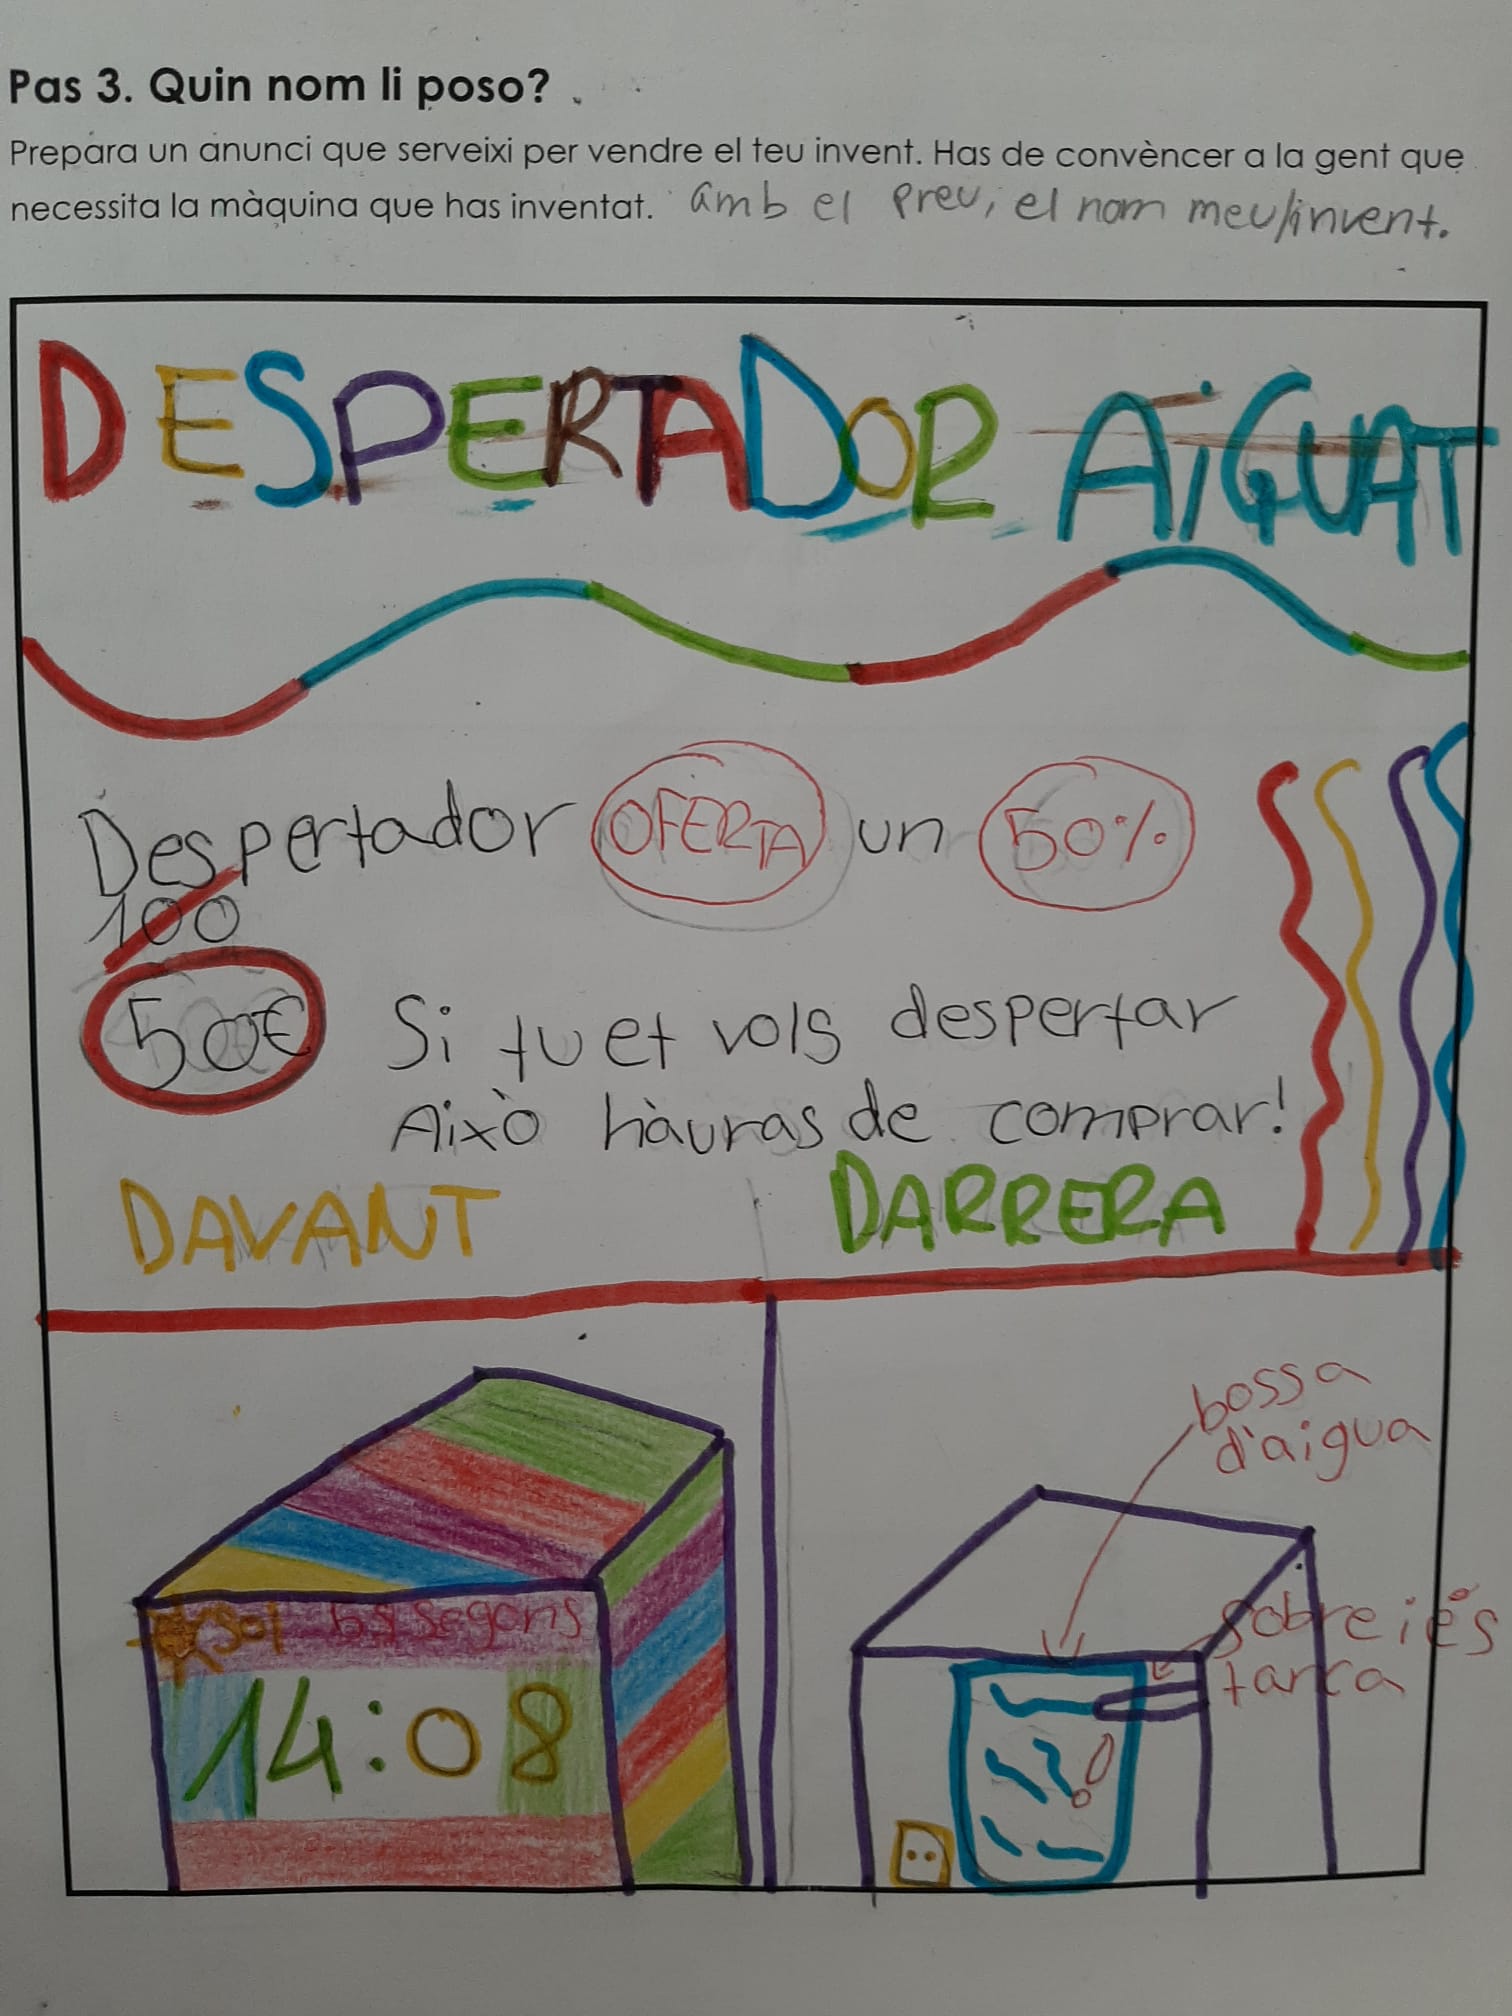 Pas 3. Quin nom li poso?
Prepara un anunci que serveixi per vendre el teu invent. Has de convèncer a la gent que
necessita la màquina que has inventat. amb el preu, el nom meu/invent.
DESPERTADOR AiGUAT
Despertador OFERTA un 50%
100
50€ Si tu et vols despertar
Això hàuras de comprar!
DAVANT DARRERA
bossa
d'aigua
sol segons
sobre i és
tanca
14:08